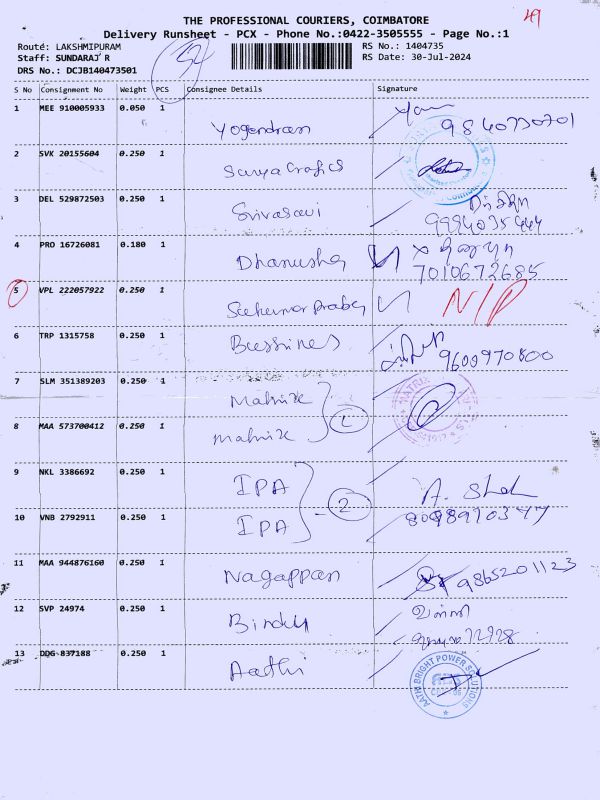 49
THE PROFESSIONAL COURIERS, COIMBATORE
Delivery Runsheet - PCX - Phone No.:0422-3505555 - Page No.:1
Route: LAKSHMIPURAM RS No.: 1404735
Staff: SUNDARAJ R RS Date: 30-Jul-2024
DRS No.: DCJB140473501
S No Consignment No Weight PCS Consignee Details Signature
1 MEE 910005933 0.050 1 Yogendran 9840730701
2 SVK 20155604 0.250 1 Surya Grafics
3 DEL 529872503 0.250 1 Srivasavi
9994035444
4 PRO 16726081 0.180 1 Dhanusha
7010672685
5 VPL 222057922 0.250 1 N/P
6 TRP 1315758 0.250 1 Bussines 9600970800
7 SLM 351389203 0.250 1 Matrix
8 MAA 573700412 0.250 1 Matrix
9 NKL 3386692 0.250 1 IPA
2
10 VNB 2792911 0.250 1 IPA
11 MAA 944876160 0.250 1 Nagappan 9865201123
12 SVP 24974 0.250 1 Bindu
13 DDG 837188 0.250 1 Aathi
AATHI BRIGHT POWER SOLUTIONS